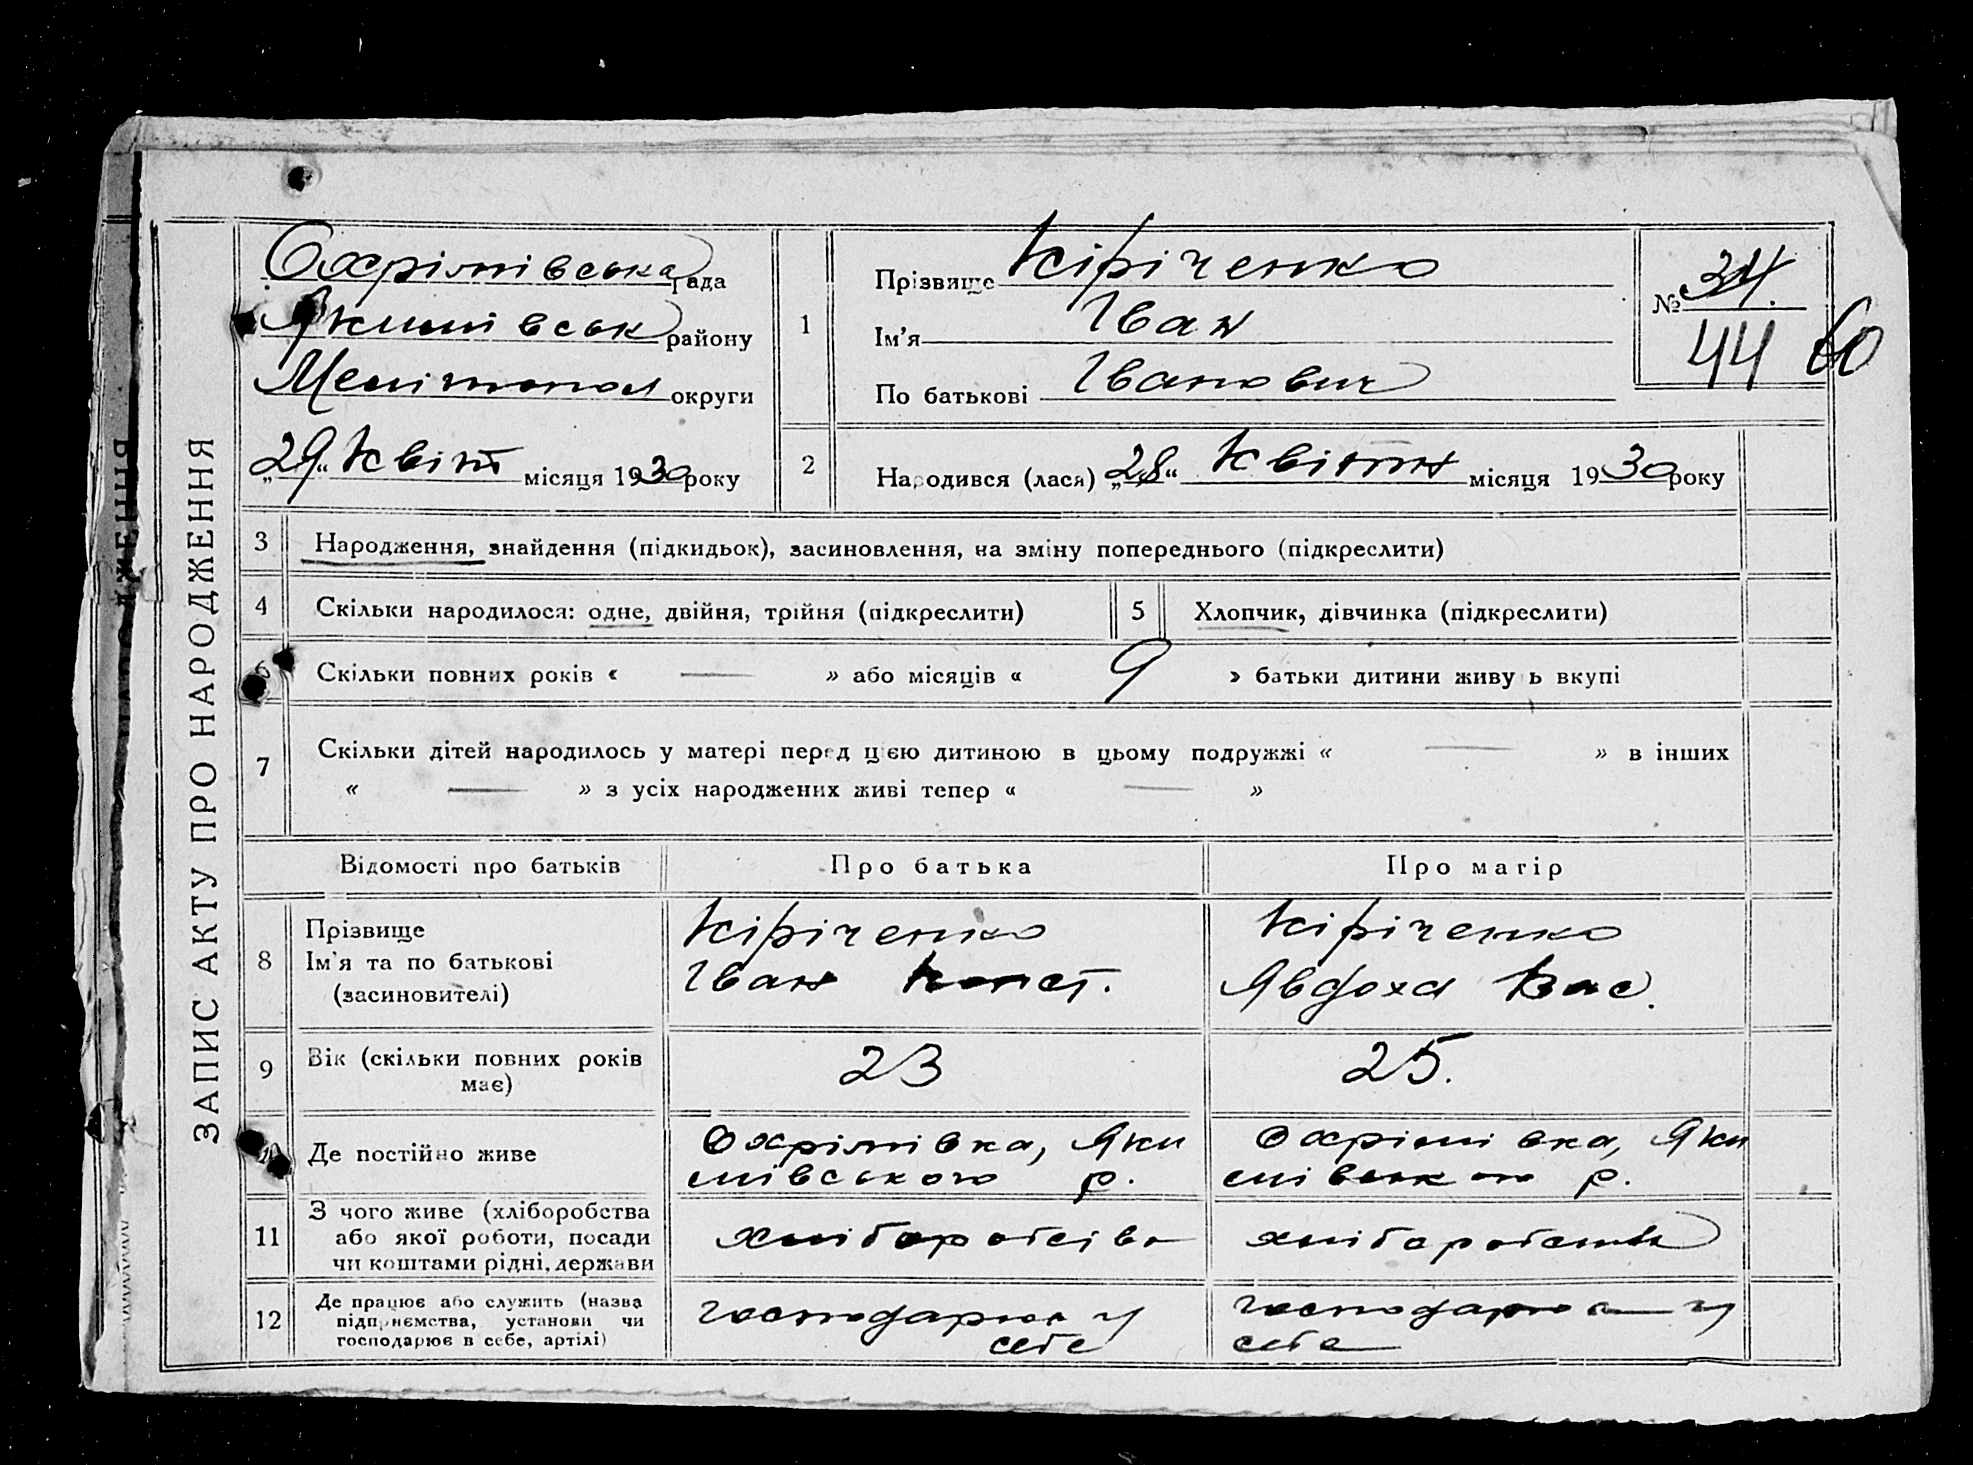 ЗАПИС АКТУ ПРО НАРОДЖЕННЯ
Охрімівська рада
Якимівськ району
Мелітопол округи
„29“ Квітн місяця 1930 року
1
Прізвище Кіріченко
Ім'я Іван
По батькові Іванович
№ 34
44
60
2
Народився (лася) „28“ Квітня місяця 1930 року
3 Народження, знайдення (підкидьок), засиновлення, на зміну попереднього (підкреслити)
4 Скільки народилося: одне, двійня, трійня (підкреслити)
5 Хлопчик, дівчинка (підкреслити)
6 Скільки повних років « — » або місяців « 9 » батьки дитини живуть вкупі
7 Скільки дітей народилось у матері перед цією дитиною в цьому подружжі « — » в інших
« — » з усіх народжених живі тепер « — »
Відомості про батьків Про батька Про матір
8
Прізвище
Ім'я та по батькові
(засиновителі)
Кіріченко
Іван Конст.
Кіріченко
Явдоха Вас.
9
Вік (скільки повних років
має)
23
25.
Де постійно живе
Охрімівка, Яки
мівського р.
Охрімівка, Яки
мівськ ого р.
11
З чого живе (хліборобства
або якої роботи, посади
чи коштами рідні, держави
хліборобство
хліборобства
12
Де працює або служить (назва
підприємства, установи чи
господарює в себе, артілі)
господарює у
себе
господарює у
себе